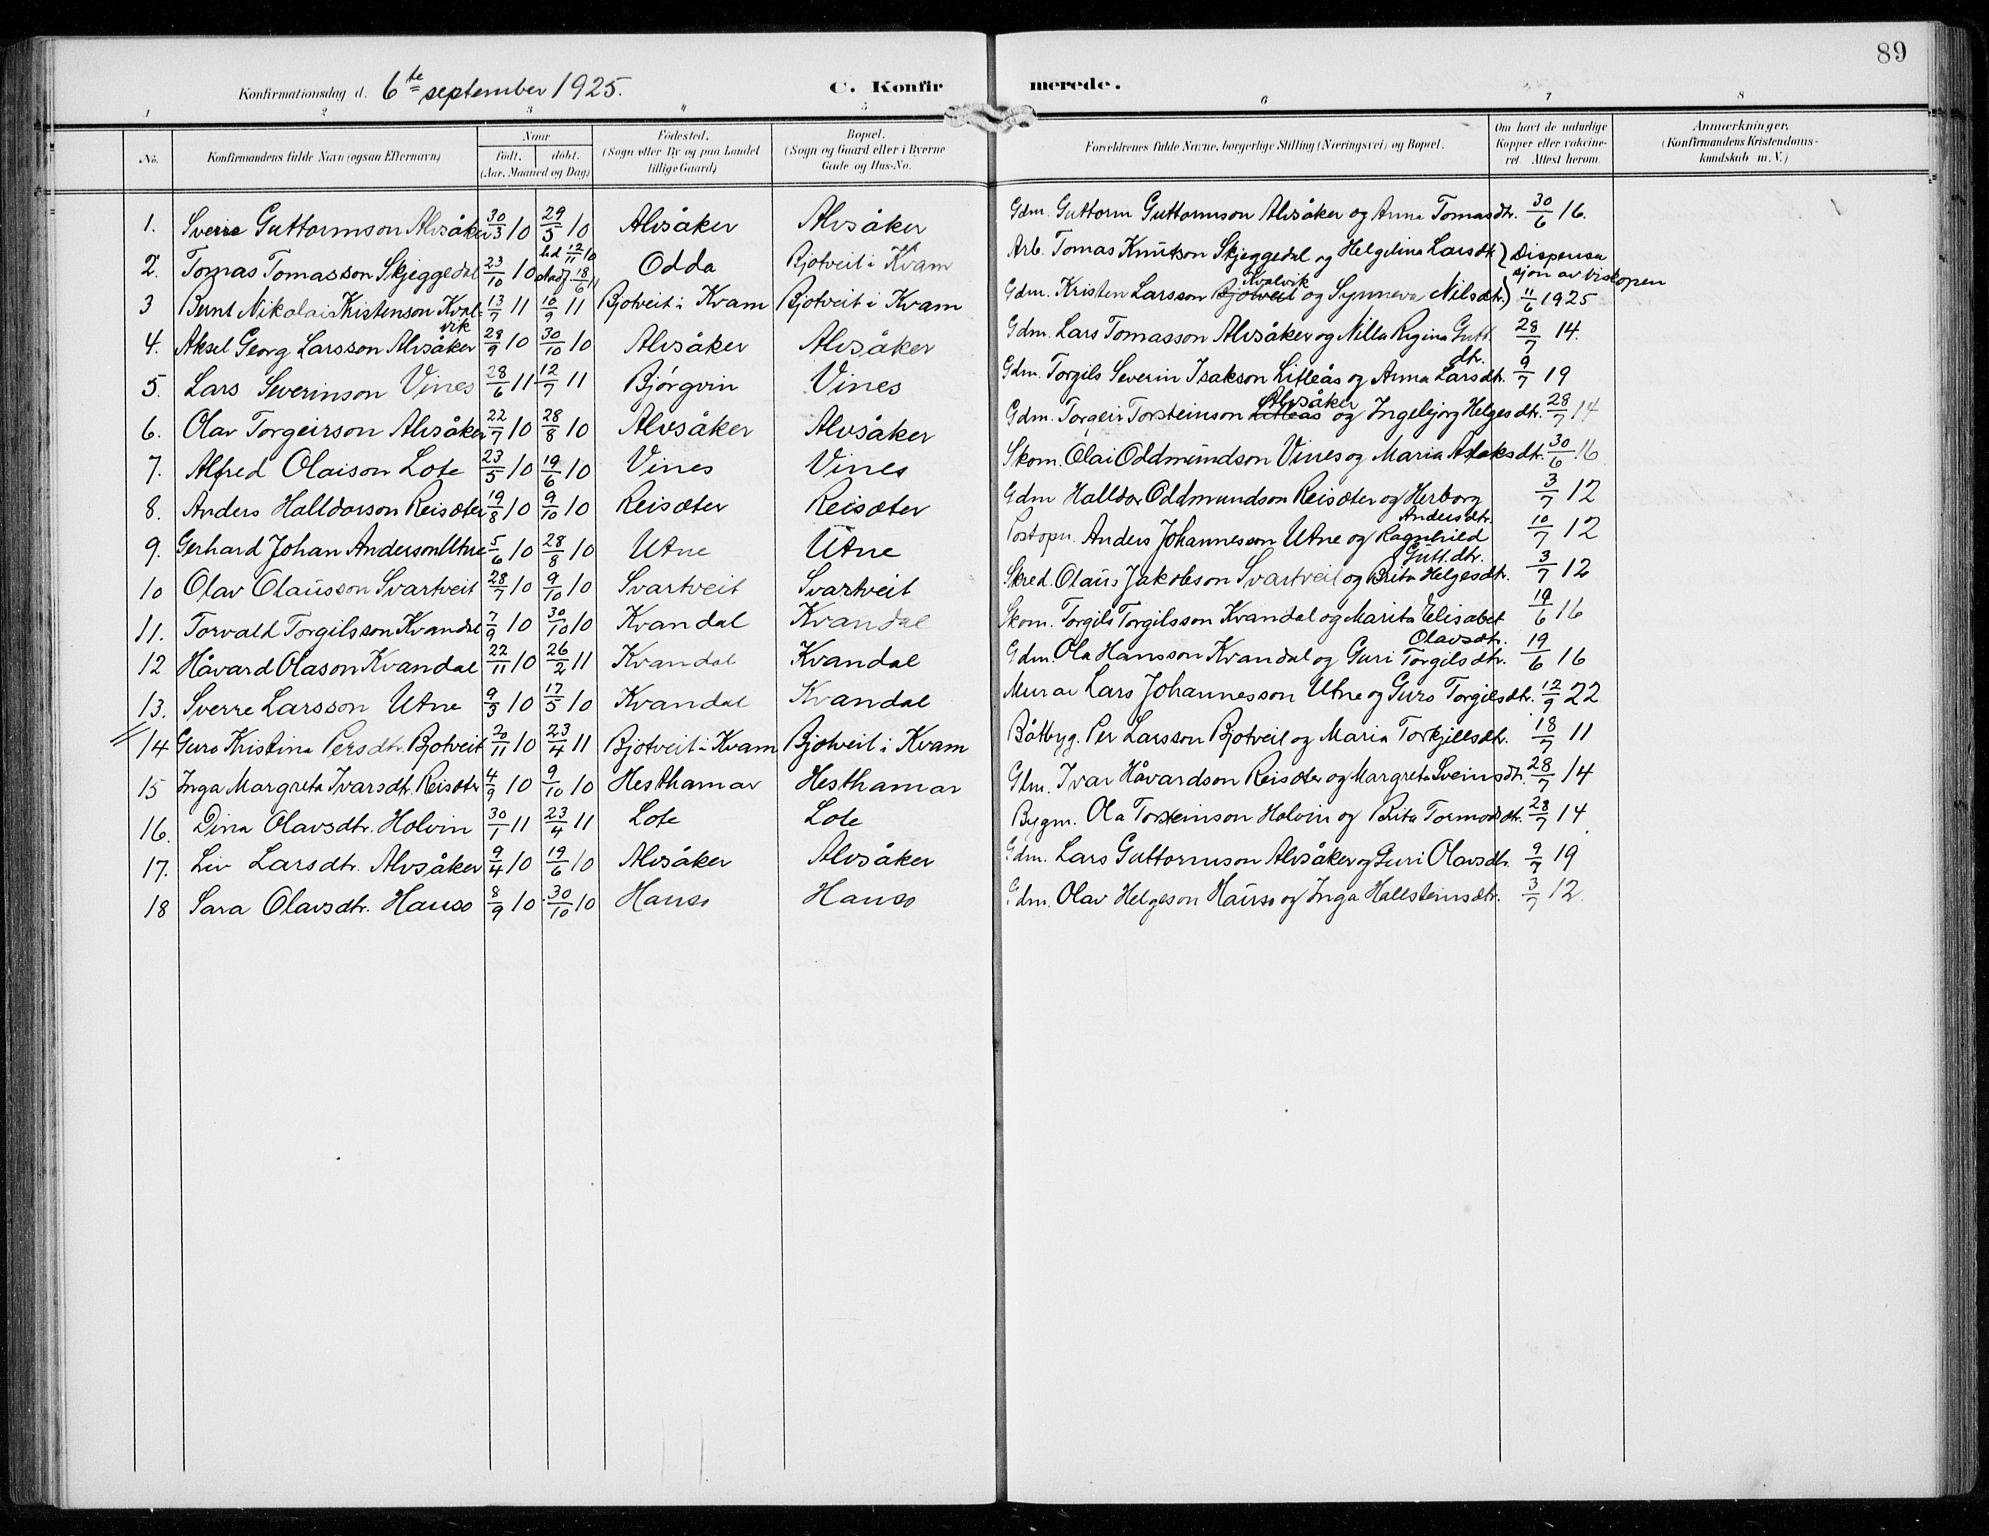 89
Konfirmationsdag d. 6te september 1925. C. Konfirmerede.
1 2 3 4 5 6 7 8
No. Konfirmandens fulde Navn (ogsaa Efternavn) Naar født. døbt. (Aar, Maaned og Dag) Fødested. (Sogn eller By og paa Landet tillige Gaard) Bopæl. (Sogn og Gaard eller i Byerne Gade og Hus-No. Forældrenes fulde Navne, borgerlige Stilling (Næringsvei) og Bopæl. Om havt de naturlige Kopper eller vakcineret. Attest herom. Anmerkninger. (Konfirmandens Kristendomskundskab m. V.)
1. Sverre Guttormson Alvsåker 30/3 10 29/5 10 Alvsåker Alvsåker Gdm. Guttorm Guttormson Alvsåker og Anna Tomasdtr. 30/6 16.
2. Tomas Tomasson Skjeggedal 23/10 10 hd 12/11 10 stadf. 18/6 11 Odda Bjotveit i Kvam Arb. Tomas Knutson Skjeggedal og Helgelina Larsdtr. } Dispensasjon av biskopen
3 Bernt Nikolai Kristenson Kvalvik 13/7 11 10/9 11 Bjotveit i Kvam Bjotveit i Kvam Gdm. Kristen Larsson Bjotveit Kvalvik og Synneva Nilsdtr. } 11/6 1925
4. Aksel Georg Larsson Alvsåker 28/9 10 30/10 10 Alvsåker Alvsåker Gdm. Lars Tomasson Alvsåker og Nilla Regina Gutt.dtr. 28/7 14.
5. Lars Severinson Vines 28/6 11 12/7 11 Bjørgvin Vines Gdm. Torgils Severin Isakson Litleås og Anna Larsdtr. 9/7 19
6. Olav Torgeirson Alvsåker 22/7 10 28/8 10 Alvsåker Alvsåker Gdm. Torgeir Torsteinson Litleås Alvsåker og Ingebjorg Helgesdtr. 28/7 14
7. Alfred Olaison Lote 23/5 10 19/6 10 Vines Vines Skom. Olai Oddmundson Vines og Maria Aslaksdtr. 30/6 16
8. Anders Halldorson Reisæter 19/8 10 9/10 10 Reisæter Reisæter Gdm Halldor Oddmundson Reisæter og Herborg Andersdtr. 3/7 12
9. Gerhard Johan Anderson Utne 5/6 10 28/8 10 Utne Utne Postopn. Anders Johannesson Utne og Ragnhild Gutt.dtr. 10/7 12
10 Olav Olausson Svartveit 28/7 10 9/10 10 Svartveit Svartveit Skred. Olaus Jakobson Svartveit og Brita Helgesdtr. 3/7 12
11. Torvald Torgilsson Kvandal 7/9 10 30/10 10 Kvandal Kvandal Skom. Torgils Torgilsson Kvandal og Marita Elisabet Olavsdtr. 19/6 16
12 Håvard Olason Kvandal 22/11 10 26/2 11 Kvandal Kvandal Gdm. Ola Hansson Kvandal og Guri Torgilsdtr. 19/6 16
13. Sverre Larsson Utne 9/3 10 17/5 10 Kvandal Kvandal Murar Lars Johannesson Utne og Guro Torgilsdtr. 12/9 22
14 Guro Kristina Persdtr. Bjotveit 20/11 10 23/4 11 Bjotveit i Kvam Bjotveit i Kvam Båtbyg. Per Larsson Bjotveit og Maria Torkjellsdtr. 18/7 11
15 Inga Margreta Ivarsdtr. Reisæter 4/9 10 9/10 10 Hesthamar Hesthamar Gdm. Ivar Håvardson Reisæter og Margreta Sveinsdtr. 28/7 14
16. Dina Olavsdtr. Holvin 30/1 11 23/4 11 Lote Lote Bygm. Ola Torsteinson Holvin og Brita Tormodsdtr. 28/7 14.
17. Liv Larsdtr. Alvsåker 9/4 10 19/6 10 Alvsåker Alvsåker Gdm. Lars Guttormson Alvsåker og Guri Olavsdtr. 9/7 19
18 Sara Olavsdtr. Hauso 8/9 10 30/10 10 Hauso Hauso Gdm. Olav Helgeson Hauso og Inga Hallsteinsdtr. 3/7 12.